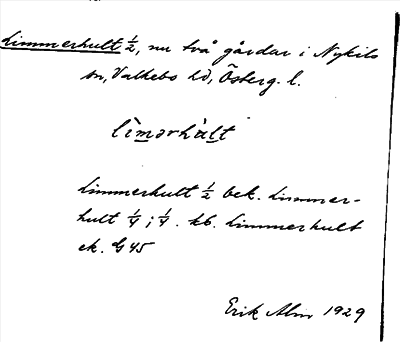 Limmerhult 1/2, nu två gårdar i Nykils
sn, Valkebo hd, Österg. l.
lìmərhùlt
Limmerhult 1/2 bek. Limmer-
hult 1/4; 1/4. kb. Limmerhult
ek. G 45
Erik Alm 1929